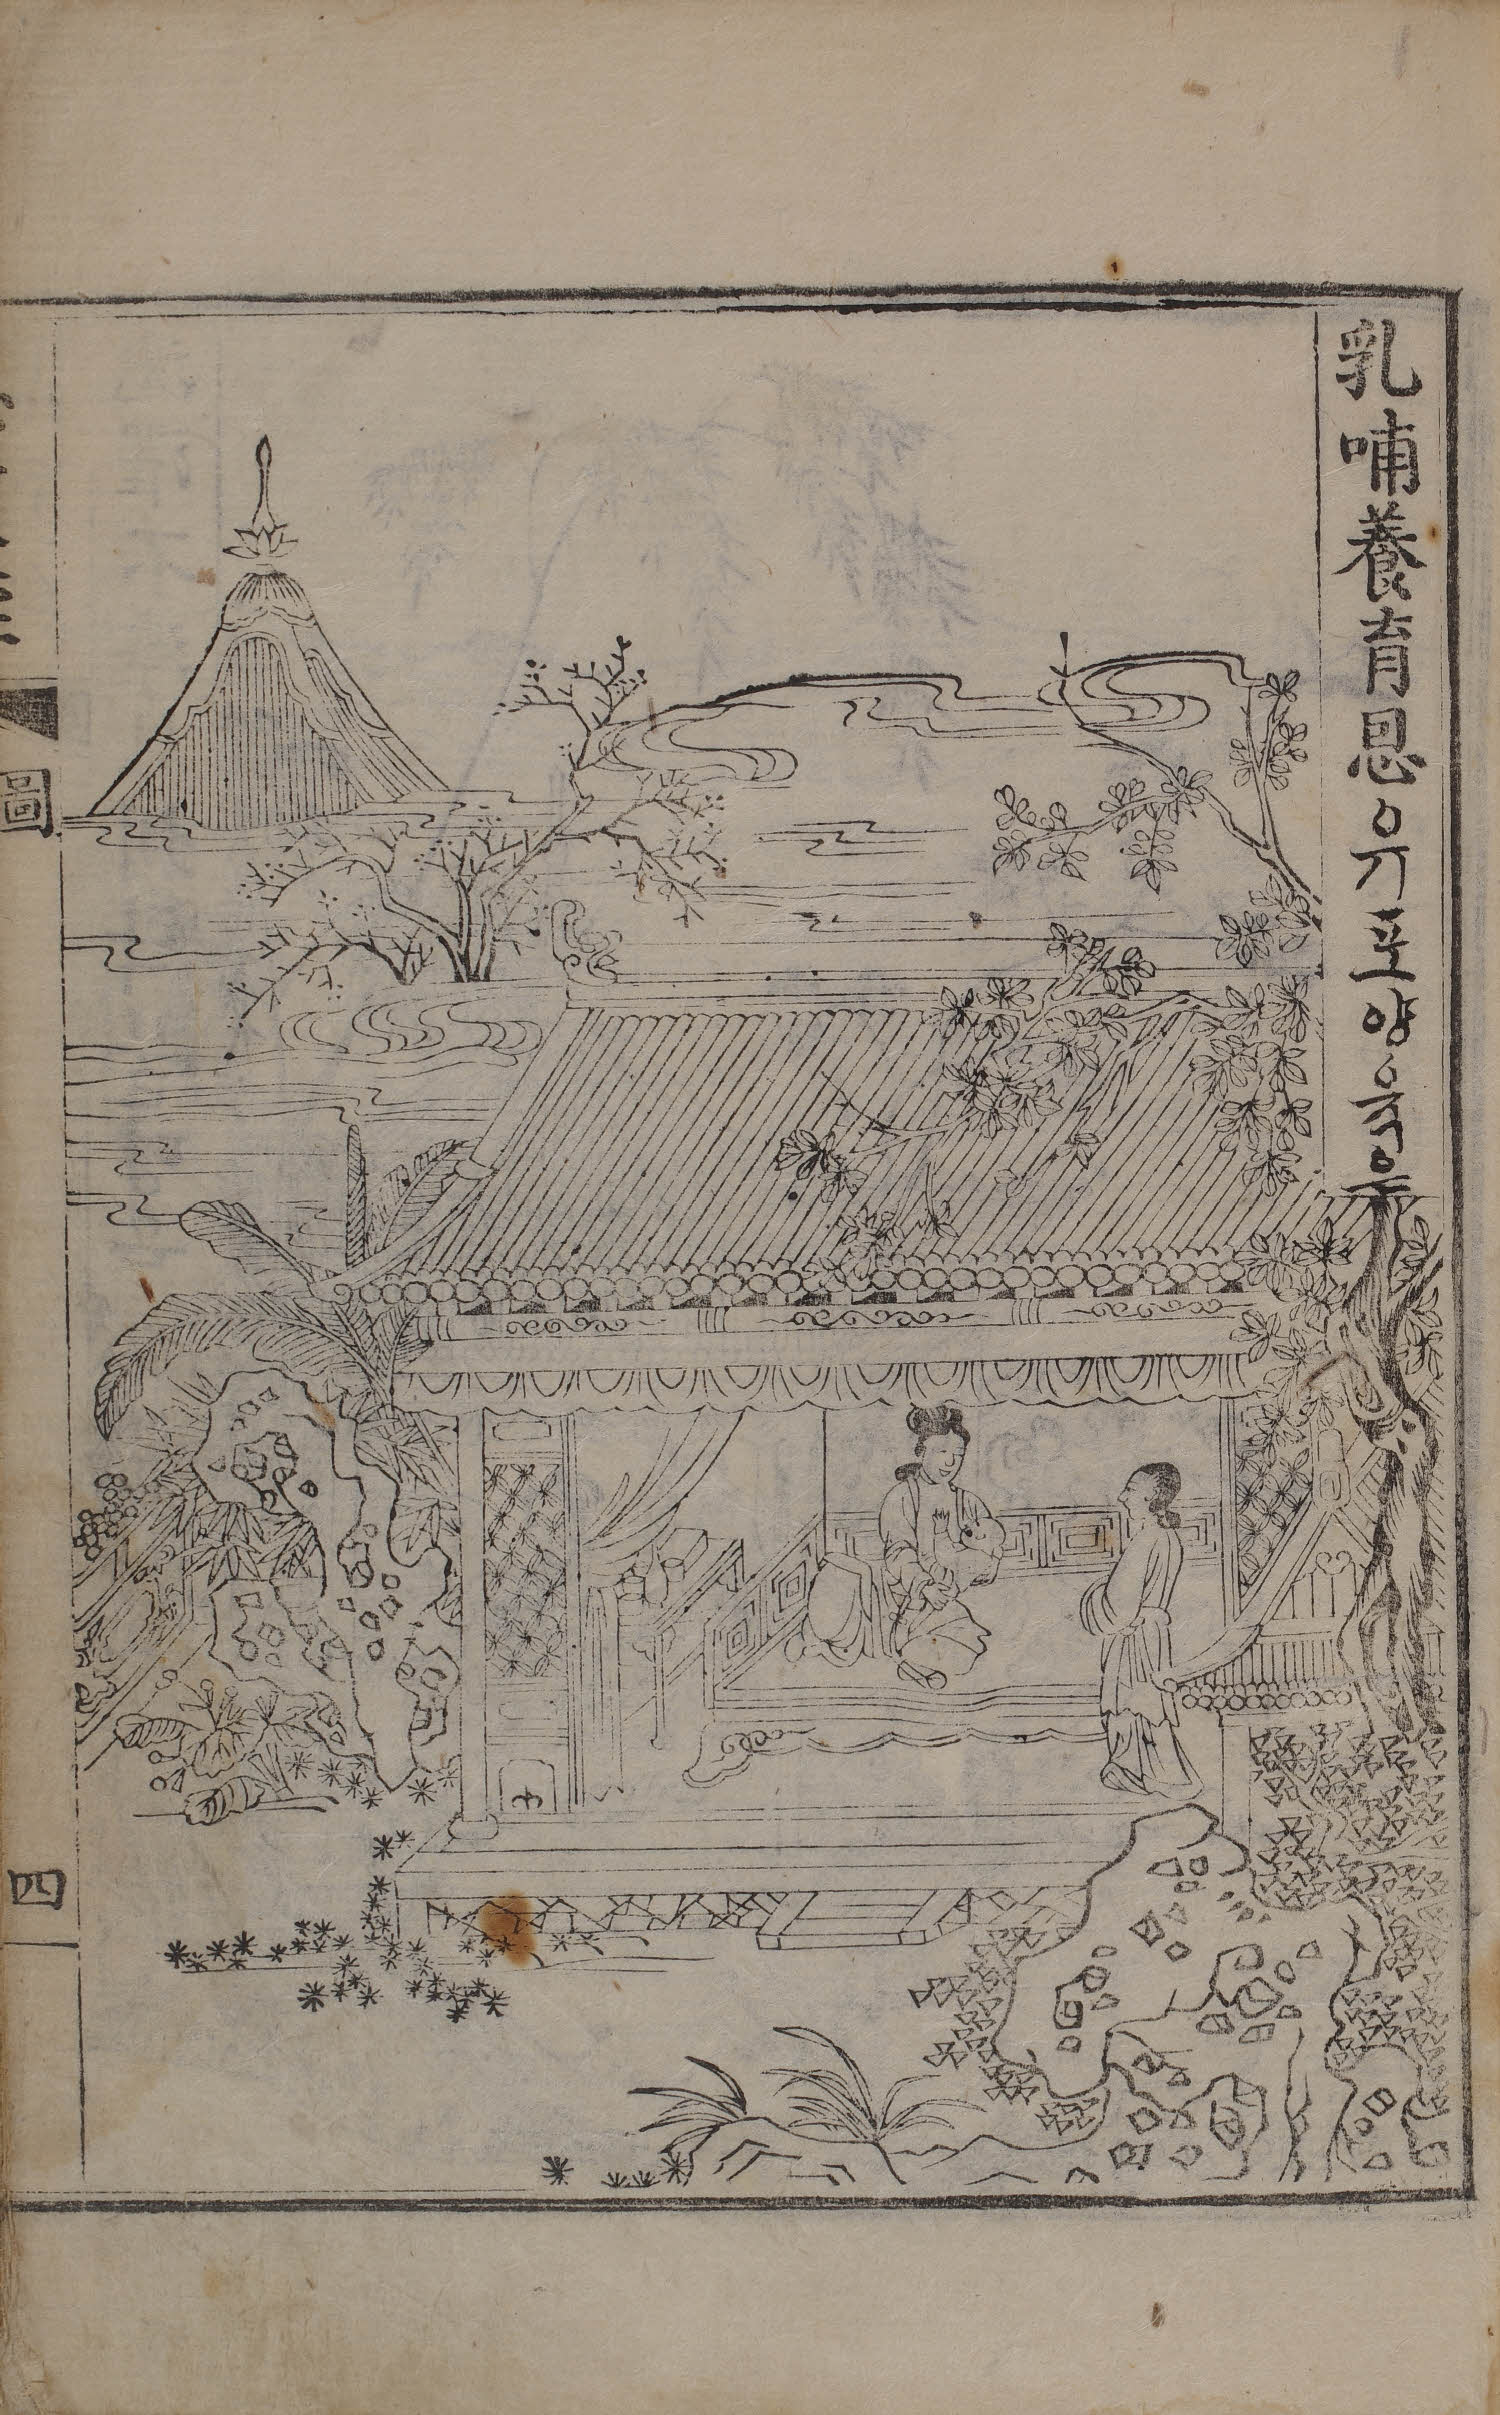 乳哺養育恩유포양육은
圖
四